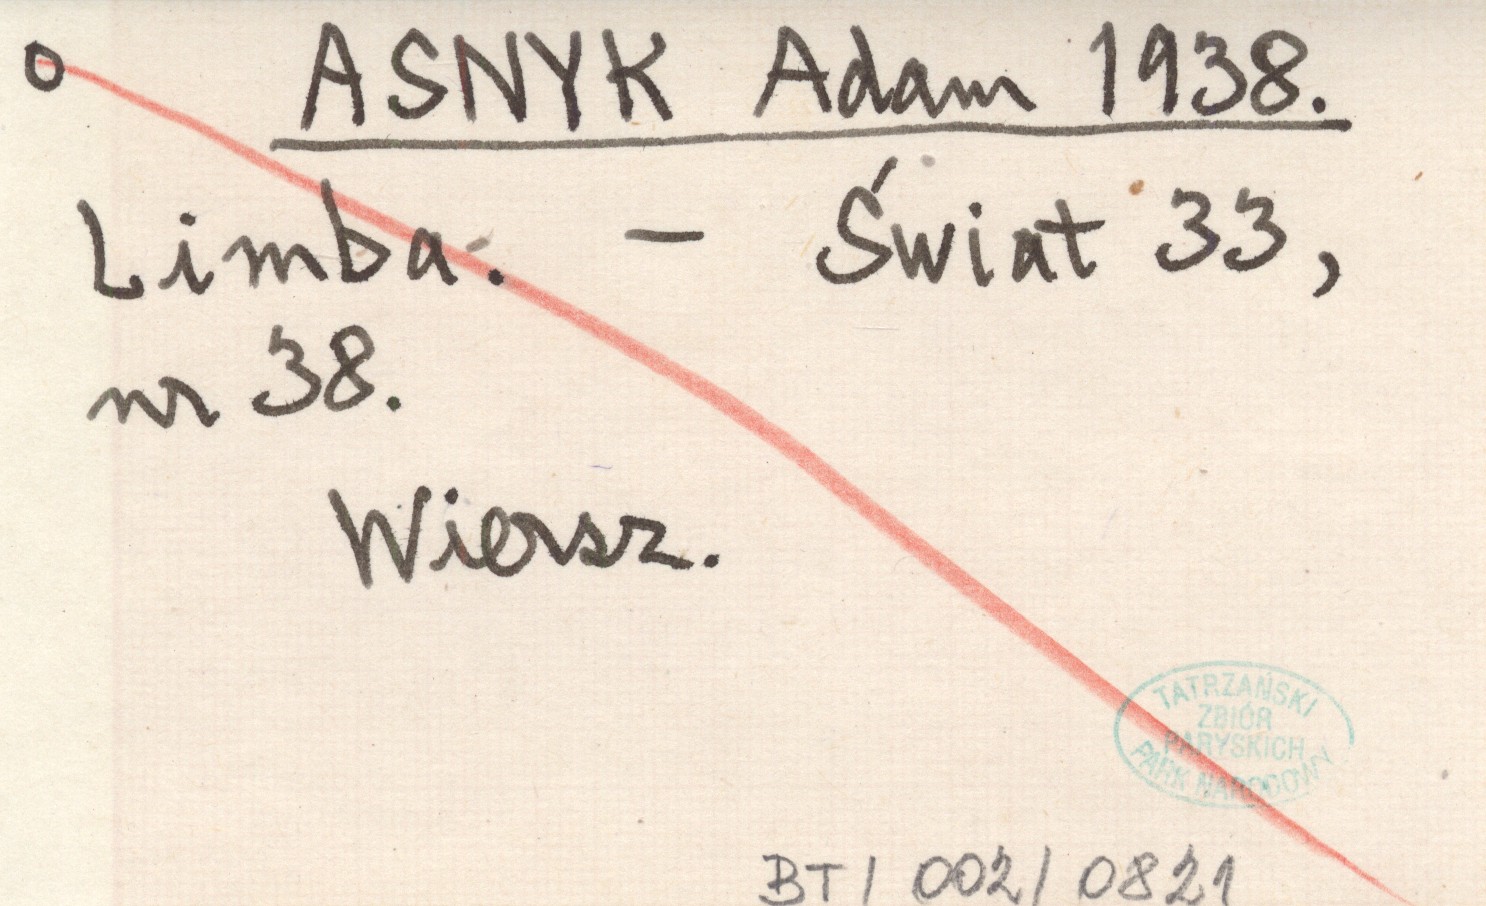 o ASNYK Adam 1938.
Limba. – Świat 33,
nr 38.
Wiersz.
TATRZAŃSKI
ZBIÓR
PARYSKICH
PARK NARODOWY
BT/ 002/ 0821